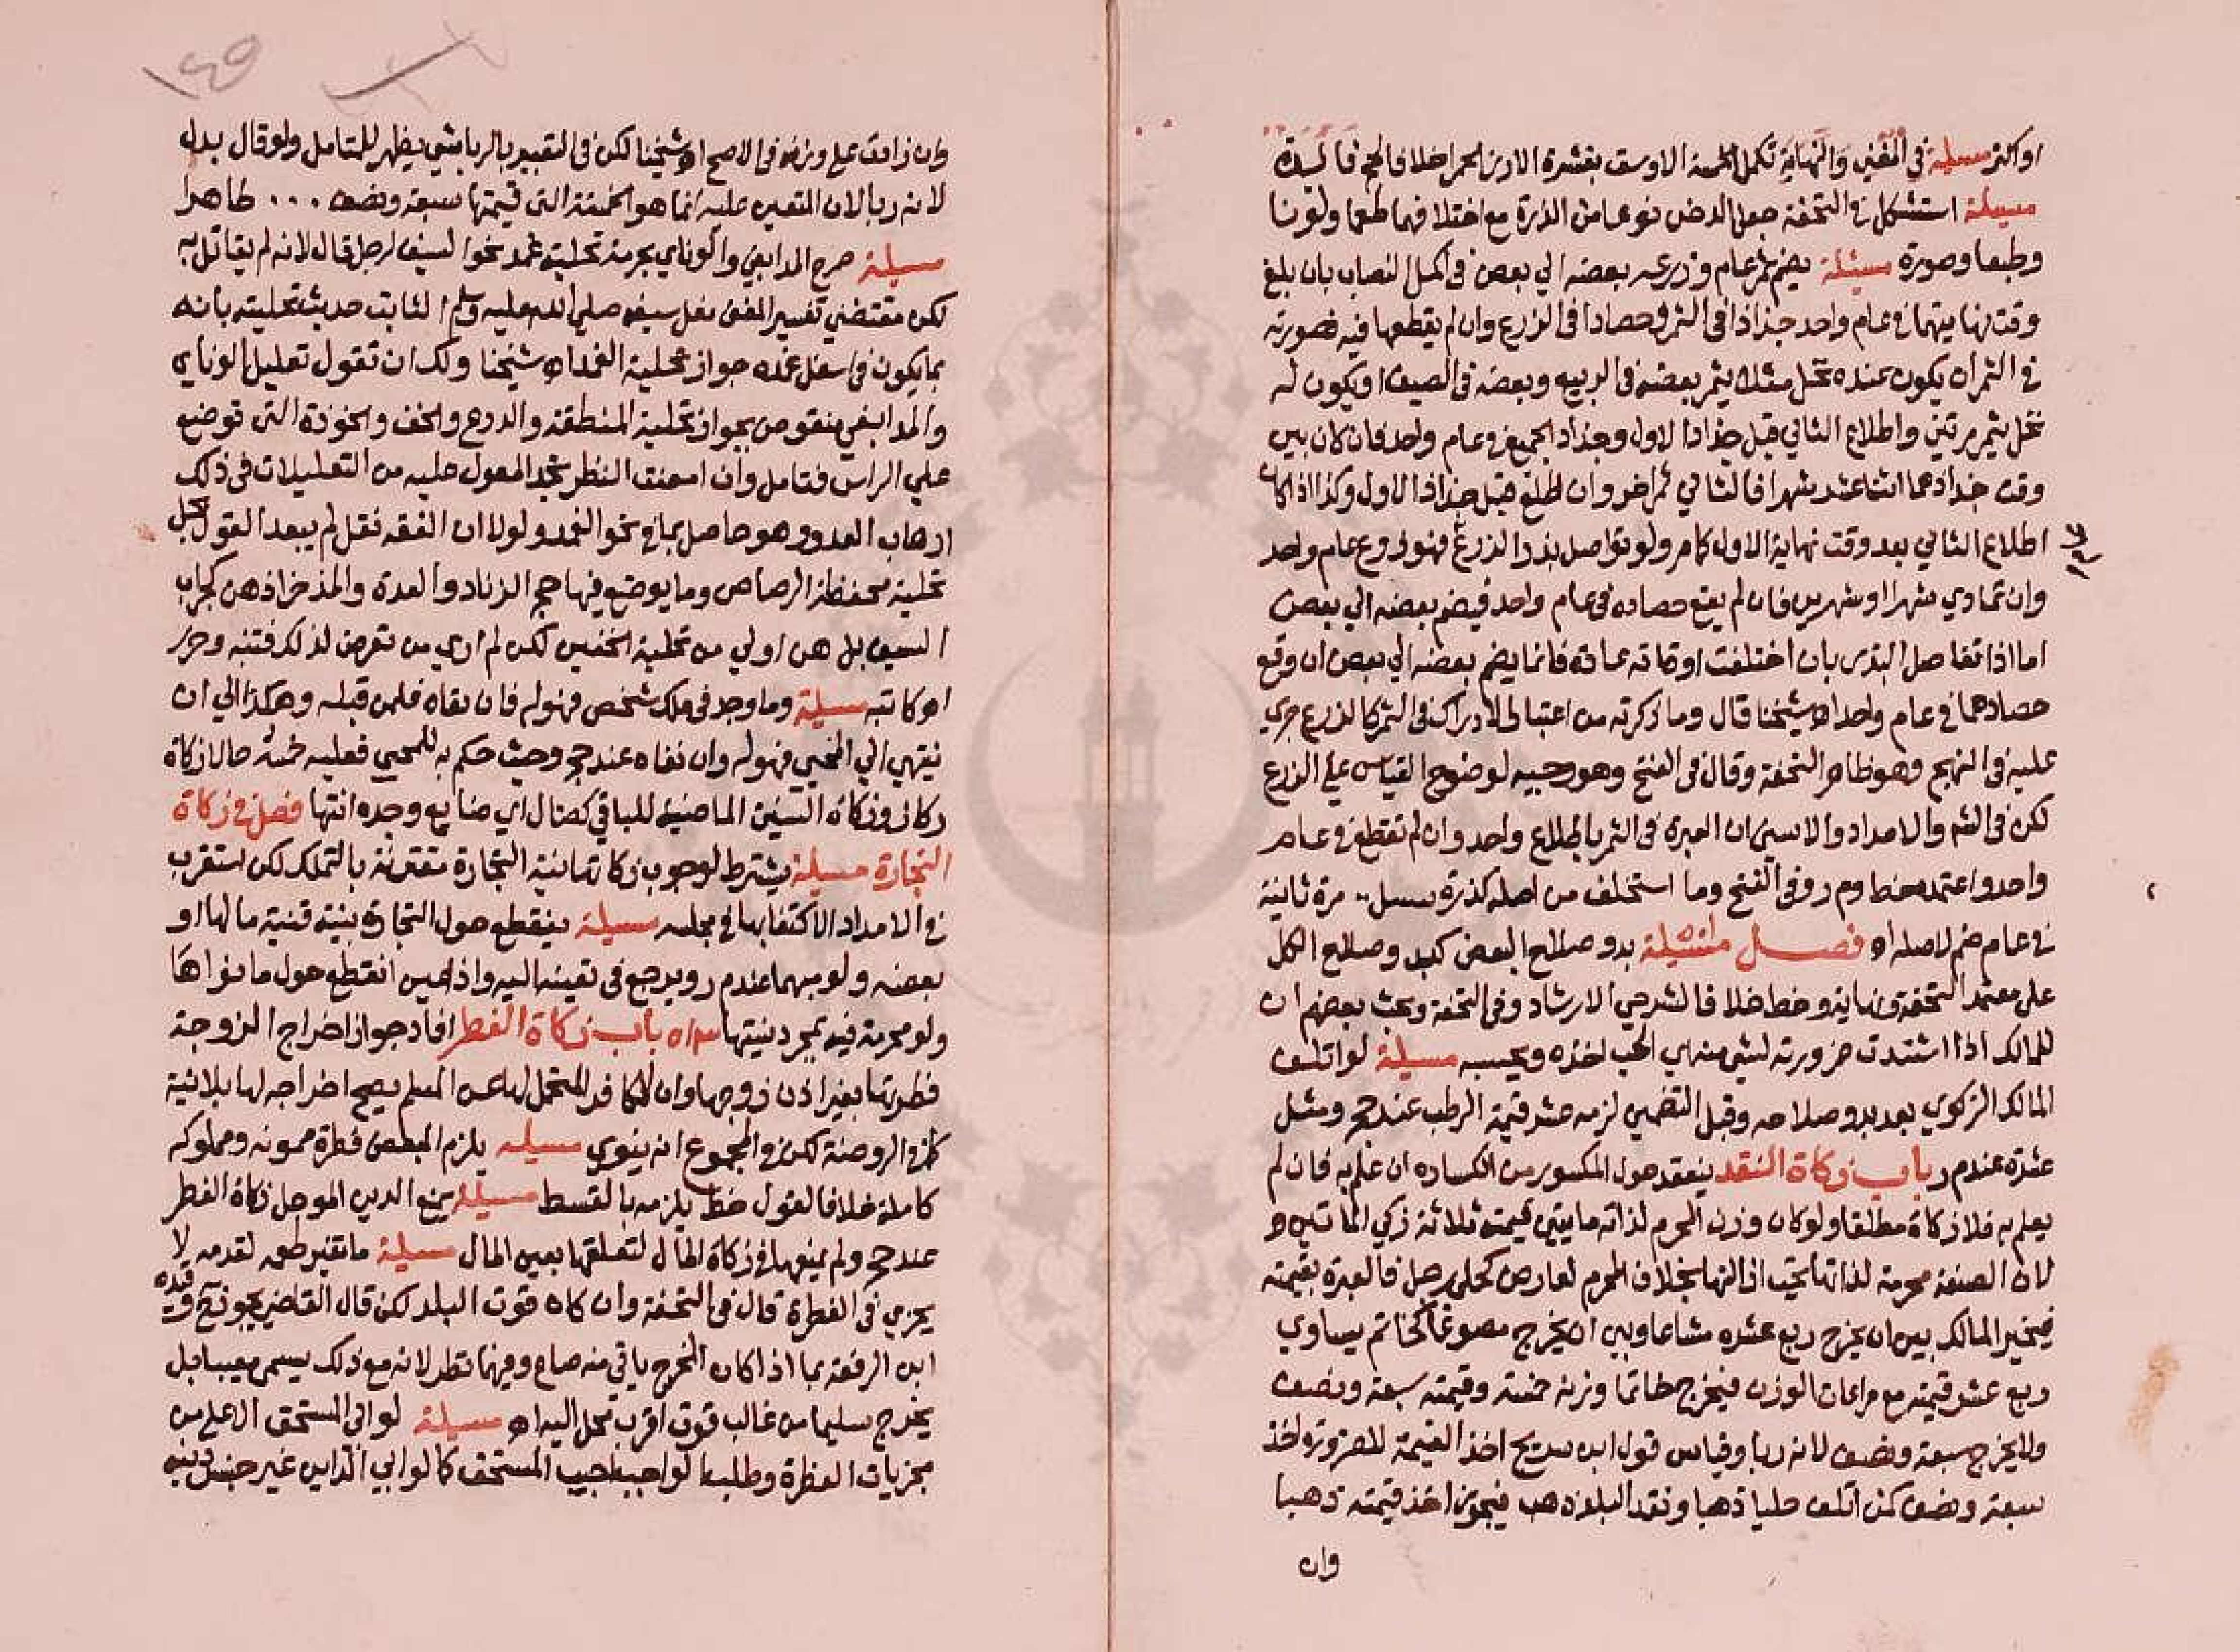 او اكثر مسيلة في المغني والنهاية تكمل الخمسة الاوسق بقشرة الارز الحمر اخلافا لحج فائدة
مسيلة استشكل في التحفة جعل الدخن نوعا من الذرة مع اختلافهما طعما ولونا
وطبعا وصورة مسئلة يضم ثمر عام وزرعه بعضه الي بعض في اكمال النصاب بان بلغ
وقت نهايتهما في عام واحد جذاذا في الثمر وحصادا في الزرع وان لم يقطعها فيه فصورته
في الثمر ان يكون عنده نخل مثلا يثمر بعضه في الربيع وبعضه في الصيف او يكون له
نخل يثمر مرتين واطلاع الثاني قبل جذاذ الاول وجذاذ الجميع في عام واحد فان كان بين
وقت جذاذهما اثنا عشر شهرا فالثاني ثمر اخر وان طلع قبل جذاذ الاول وكذا اذا كان
اطلاع الثاني بعد وقت نهاية الاول كما مر ولو تواصل بذر الزرع فهو زرع عام واحد
وان تمادي شهرا او شهرين فان لم يقع حصاده في عام واحد فيضم بعضه الي بعض
اما اذا تفاصل البذر بان اختلفت اوقاته عادة فانما يضم بعضه الي بعض ان وقع
حصادهما في عام واحد اه شيخنا قال وما ذكرته من اعتبار الادراك في الثمر كالزرع جري
عليه في النهج وهو ظاهر التحفة وقال في الفتح وهو وجيه لوضوح القياس علي الزرع
لكن في الشم والامداد والاسني ان العبرة في الثمر باطلاع واحد وان لم تقطع في عام
واحد واعتمده خط وم ر وفي الفتح وما استخلف من اصله كذرة سنبل مرة ثانية
في عام ضم لاصله اه فصل مسئلة بدو صلاح البعض كبدو صلاح الكل
علي معتمد التحفة ونهاية وخط خلافا لشرحي الارشاد وفي التحفة وبحث بعضهم ان
للمالك اذا اشتدت ضرورته لشي منه اي الحب اخذه ويحسبه مسيلة لو اتلف
المالك الزكوي بعد بدو صلاحه وقبل التضمين لزمه عشر قيمة الرطب عند حج ومثل
عشره عند م ر باب زكاة النقد ينعقد حول المكسور من انكساره ان علم به فان لم
يعلم به فلا زكاة مطلقا ولو كان وزن المحرم لذاته مايتين قيمته ثلاثة زكي المائتين
لان الصنعة محرمة لذاتها تجب ازالتها بخلاف المحرم لعارض كحلي رجل فالعبرة بقيمته
فيخير المالك بين ان يخرج ربع عشره مشاعا وبين ان يخرج مصوغا كخاتم يساوي
ربع عشر قيمته مع مراعات الوزن فيخرج خاتما وزنه خمسة وقيمته سبعة ونصف
ولا يخرج سبعة ونصف لانه ربا وقياس قول ابن سريج اخذ القيمة للضرورة اخذ
سبعة ونصف كمن اتلف حليا ذهبا ونقد البلد ذهب فيجوز اخذ قيمته ذهبا
وان
وان زادت علي وزنه في الاصح اه شيخنا لكن في التعبير بالربا شي يظهر للمتامل ولو قال بدل
لانه ربا لان المتعين عليه انما هو الخمسة التي قيمتها سبعة ونصف ... ظاهرا
مسيلة صرح المدابغي والوناي بحرمة تحلية غمد نحو السيف لرجل قالا لانه لم يقاتل به
لكن مقتضي تفسير المغني نعل سيفه صلي الله عليه وسلم الثابت حديث تحليته بانه
ما يكون في اسفل غمده جواز تحلية الغمد اه شيخنا ولك ان تقول تعليل الوناي
والمدابغي منقوض بجواز تحلية المنطقة والدرع والخف والخوذة التي توضع
علي الراس فتامل وان امعنت النظر تجد المعول عليه من التعليلات في ذلك
ارهاب العدو وهو حاصل بما في نحو الغمد ولولا ان الفقه نقل لم يبعد القول بحل
تحلية محفظة الرصاص وما يوضع فيها حجر الزناد والعدة والمذخر اذ هن كجراب
السيف بل هن اولي من تحلية الخفين لكن لم اري من تعرض لذلك فتنبه وحرر
اه كاتبه مسيلة وما وجد في ملك شخص فهو له فان نفاه فلمن قبله وهكذا الي ان
ينتهي الي المحيي فهو له وان نفاه عند حج وحيث حكم به للمحيي فعليه خمسه حالا زكاة
ركاز وزكاة السنين الماضية للباقي كضال اي ضايع وجده انتها فصل في زكاة
التجارة مسيلة يشترط لوجوب زكاتها نية التجارة مقترنة بالتملك لكن استقرب
في الامداد الاكتفا بها في مجلسه مسيلة ينقطع حول التجارة بنية قنية مالها او
بعضه ولو مبهما عند م ر ويرجع في تعيينه اليه واذا عين انقطع حول ما نواها
ولو محرمة فيه بمجرد نيتها م ر اه باب زكاة الفطر افاد جواز اخراج الزوجة
فطرتها بغير اذن زوجها وان الكافر المتحمل لها عن المسلم يصح اخراجه لها بلا نية
كما في الروضة لكن في المجموع انه ينوي مسيله يلزم المبعض فطرة ممونه ومملوكه
كاملة خلافا لقول خط يلزمه بالقسط مسيلة يمنع الدين الموجل زكاة الفطر
عند حج ولم يمنعها في زكاة المال لتعلقها بعين المال مسيلة ما تغير طعمه لقدمه لا
يجزي في الفطرة قال في التحفة وان كان قوت البلد لكن قال القاضي يجوز ح وقيده
ابن الرفعة بما اذا كان المخرج ياتي منه صاع وفيهما نظر لانه مع ذلك يسمي معيبا بل
يخرج سليما من غالب قوت اقرب محل اليه اه مسيلة لو ابي المستحق الاعلي من
مجزيات الفطرة وطلب الواجب اجيب المستحق كما لو ابي الداين غير جنس دينه